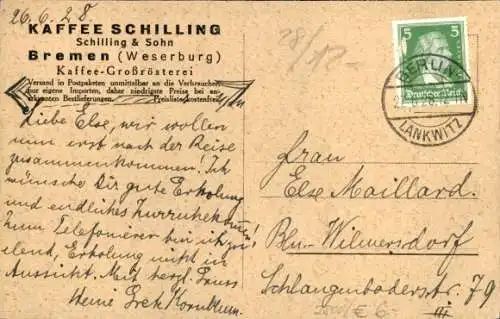 26.6.28
KAFFEE SCHILLING
Schilling & Sohn
Bremen (Weserburg)
Kaffee-Großrösterei
Versand in Postpaketen unmittelbar an die Verbraucher,
nur eigene Importen, daher niedrigste Preise bei an-
erkannten Bestlieferungen. Preisliste kostenfrei
Liebe Else, wir wollen
nun erst nach der Reise
zusammenkommen! Ich
wünsche Dir gute Erholung
und endliches
Zum Telefonieren bin ich zu
elend, Erholung nicht in
Aussicht. Mit herzl. Gruss
28/12
5 5
Deutsches Reich
BERLIN
LANKWITZ
Frau
Else Maillard.
Bln-Wilmersdorf
Schlangenbaderstr. 79
III
€ 6-